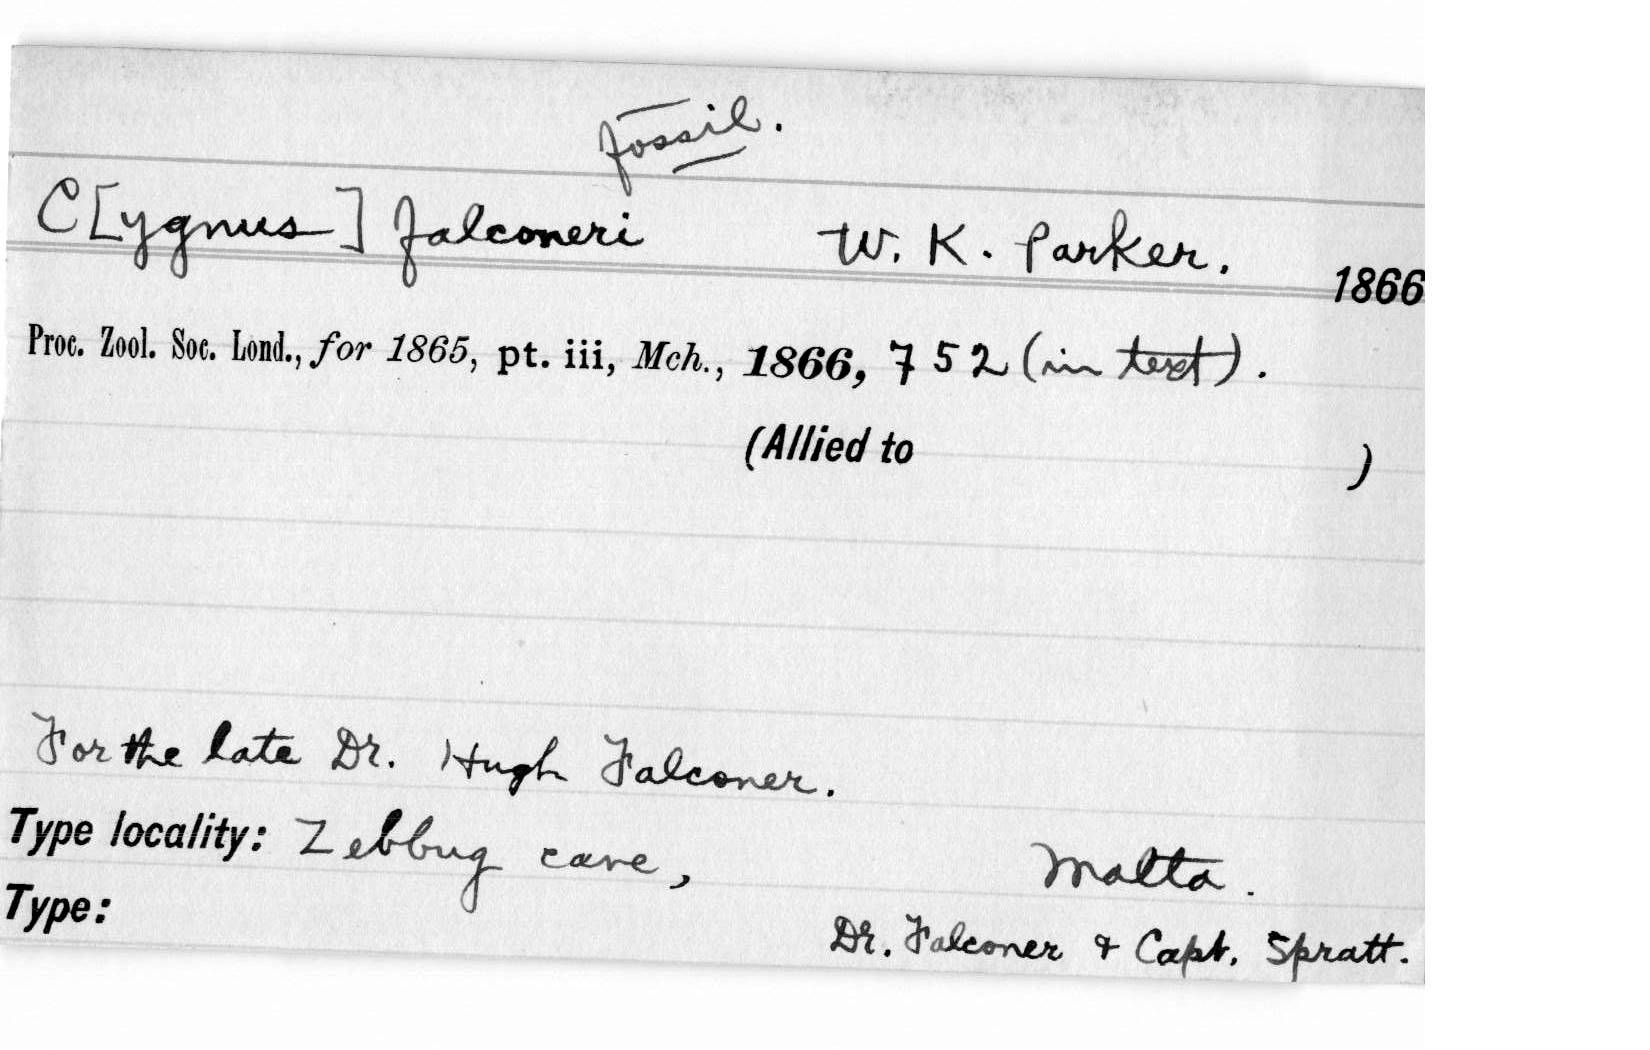 fossil.
C[ygnus] falconeri W. K. Parker. 1866
Proc. Zool. Soc. Lond., for 1865, pt. iii, Mch., 1866, 752 (in text).
(Allied to )
For the late Dr. Hugh Falconer.
Type locality: Zebbug cave, Malta.
Type: Dr. Falconer & Capt. Spratt.